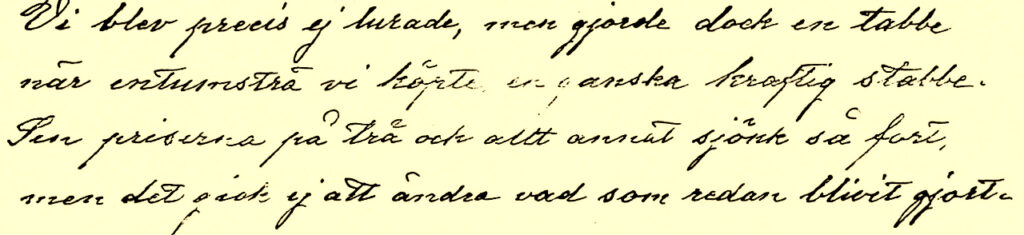 Vi blev precis ej lurade, men gjorde dock en tabbe
när entumsträ vi köpte en ganska kraftig stabbe.
Sen priserna på trä ock allt annat sjönk så fort,
men det gick ej att ändra vad som redan blivit gjort.